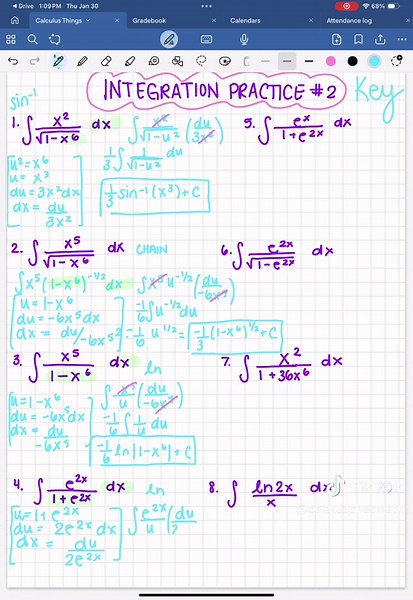 Drive 1:09 PM Thu Jan 30 68%
Calculus Things Gradebook Calendars Attendance log
INTEGRATION PRACTICE #2 Key
sin⁻¹
1. ∫ x²/√(1-x⁶) dx
∫ x²/√(1-u²) (du/3x²)
u² = x⁶
u = x³
du = 3x²dx
dx = du/3x²
1/3 ∫ 1/√(1-u²) du
1/3 sin⁻¹(x³)+C
5. ∫ eˣ/(1+e²ˣ) dx
2. ∫ x⁵/√(1-x⁶) dx CHAIN
∫x⁵(1-x⁶)^(-1/2) dx
∫x⁵u^(-1/2) (du/-6x⁵)
u = 1-x⁶
du = -6x⁵dx
dx = du/-6x⁵
-1/6 ∫u^(-1/2) du
-1/6 u^(1/2) · 2 = -1/3 (1-x⁶)^(1/2) + C
6. ∫ e²ˣ/√(1-e²ˣ) dx
3. ∫ x⁵/(1-x⁶) dx ln
u = 1-x⁶
du = -6x⁵dx
dx = du/-6x⁵
∫ x⁵/u (du/-6x⁵)
-1/6 ∫ 1/u du
-1/6 ln|1-x⁶| + C
7. ∫ x²/(1+36x⁶) dx
4. ∫ e²ˣ/(1+e²ˣ) dx ln
u = 1+e²ˣ
du = 2e²ˣ dx
dx = du/2e²ˣ
∫ e²ˣ/u (du/2
8. ∫ ln2x/x dx